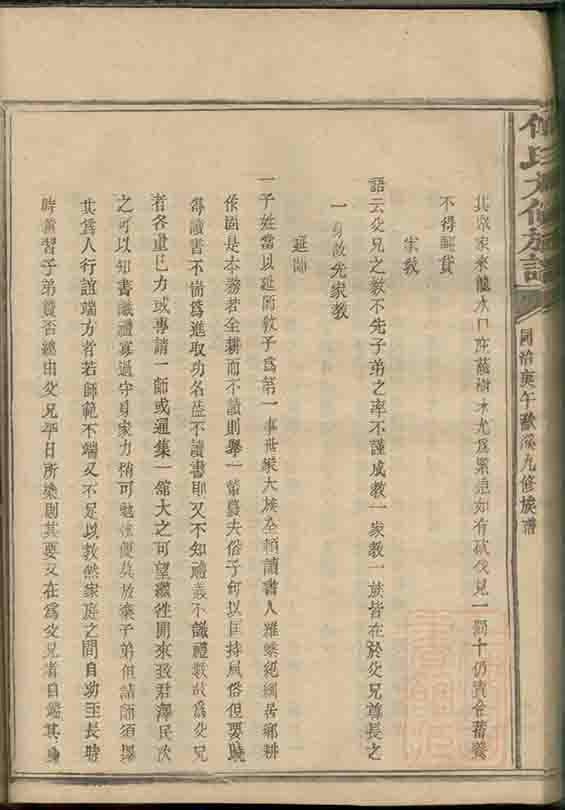 氏九修族譜
同治庚午歙溪九修族譜
其眾家來龍水口庇蔭樹木尤爲緊急如有砍伐見一罰十仍責令蓄養
不得輕貸
家教
語云父兄之教不先子弟之率不謹成教一家教一族皆在於父兄尊長之
一身故先家教
延師
一子姓當以延師教子爲第一事世家大族全賴讀書人雅樂絕國居鄉耕
作固是本務若全耕而不讀則舉一蠢蠢夫俗子何以匡持風俗但要曉
得讀書不崙爲進取功名益不讀書則又不知禮義不識禮數故爲父兄
者各量已力或專請一師或通集一館大之可望繼徃開來致君澤民次
之可以知書識禮寡過守身家力稍可勉強便莫放棄子弟但請師須擇
其爲人行誼端方者若師範不端又不足以教然家庭之間自幼至長時
時薰習子弟賢否總由父兄平日所染則其要又在爲父兄者自端其身